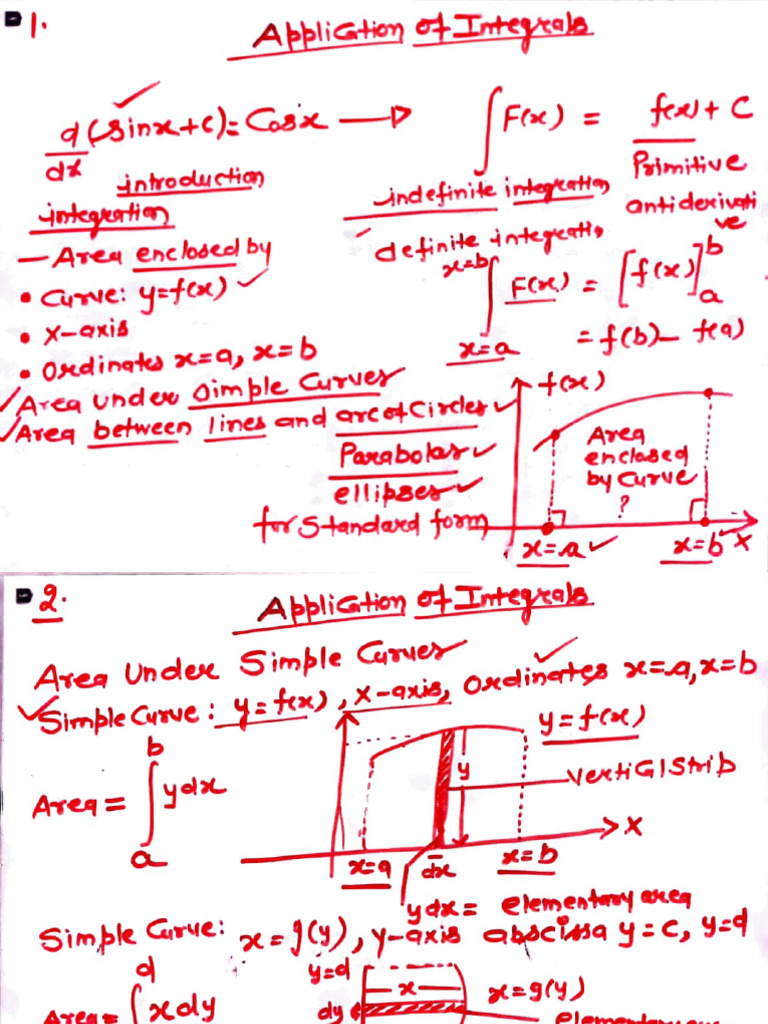 1. Application of Integrals
d/dx (sinx+c)= Cosx → ∫F(x) = f(x)+C
Primitive
antiderivative
introduction
integration
indefinite integration
definite integratio
— Area enclosed by
• Curve: y=f(x)
• X-axis
• Ordinates x=a, x=b
x=b
∫ F(x) = [f(x)]
b
a
x=a
= f(b) - f(a)
Area under Simple Curves
Area between lines and arc of Circles
Parabolas
ellipses
for Standard form
f(x)
Area
enclosed
by Curve
?
x=a x=b X
2. Application of Integrals
Area Under Simple Curves
Simple Curve: y=f(x), X-axis, Ordinates x=a, x=b
Area = ∫ ydx
b
a
y=f(x)
y
Vertical Strip
X
x=a dx x=b
ydx = elementary area
Simple Curve: x=g(y), y-axis abscissa y=c, y=d
d
Area= ∫ xdy
y=d
x
x=g(y)
dy